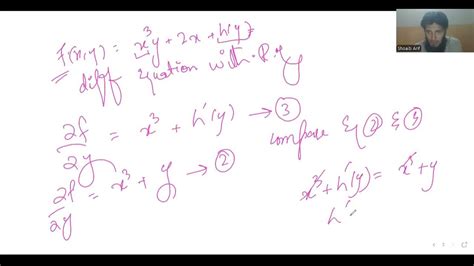 f(x,y) = x³y + 2x + h(y)
diff Equation with R. y
∂f/∂y = x³ + h'(y) → ③
∂f/∂y = x³ + y → ②
compare Eq ② & ③
x³ + h'(y) = x³ + y
h'
Shoaib Arif